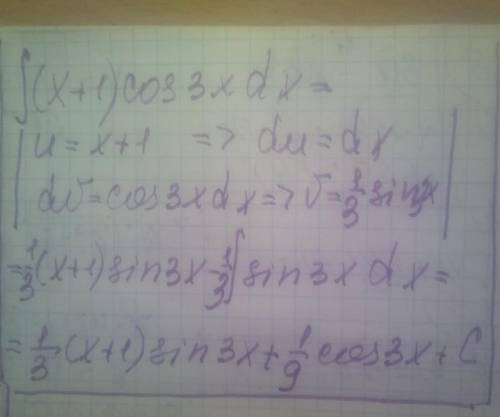 ∫(x+1)cos3xdx=
u=x+1 => du=dx
dv=cos3xdx=>v=1/3 sin3x
=1/3(x+1)sin3x-1/3∫sin3xdx=
=1/3(x+1)sin3x+1/9cos3x+C